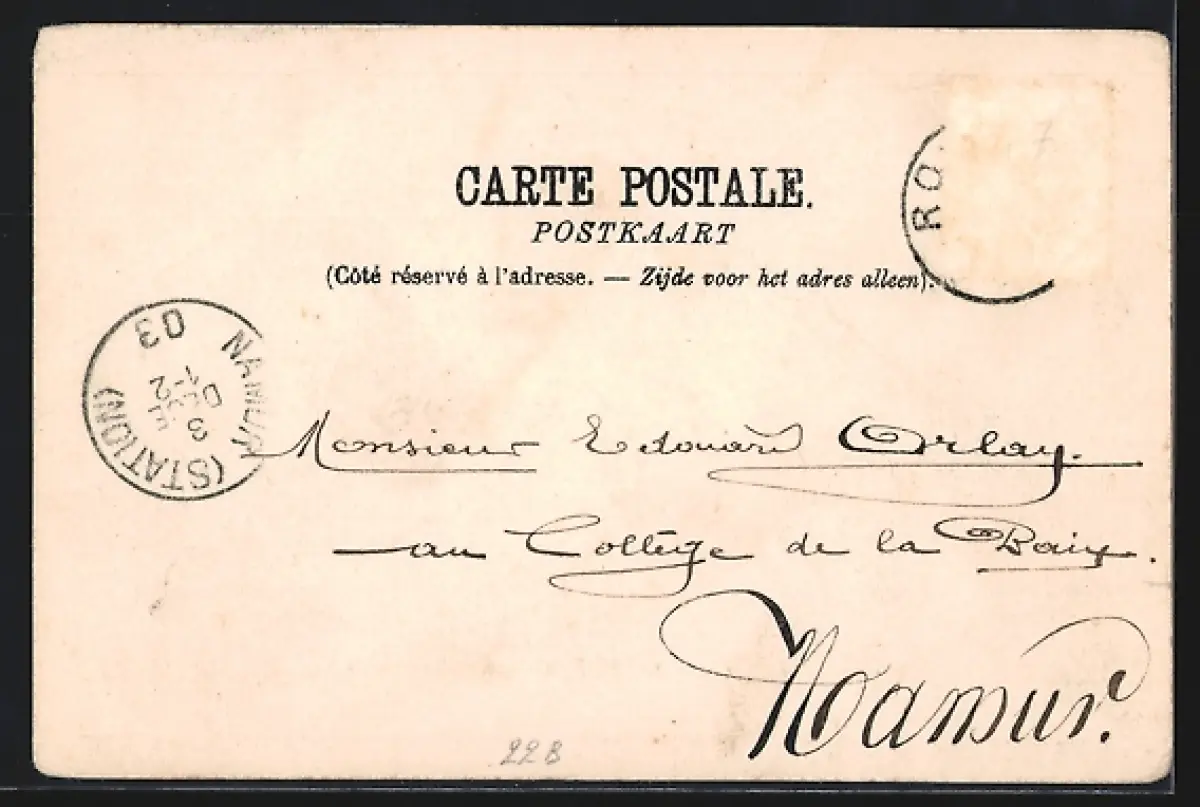 CARTE POSTALE.
POSTKAART
(Côté réservé à l'adresse. — Zijde voor het adres alleen).
RO
NAMUR (STATION)
3 DÉC
1-2
03
Monsieur Edouard Orlay.
au Collège de la Paix.
Namur.
22B
7